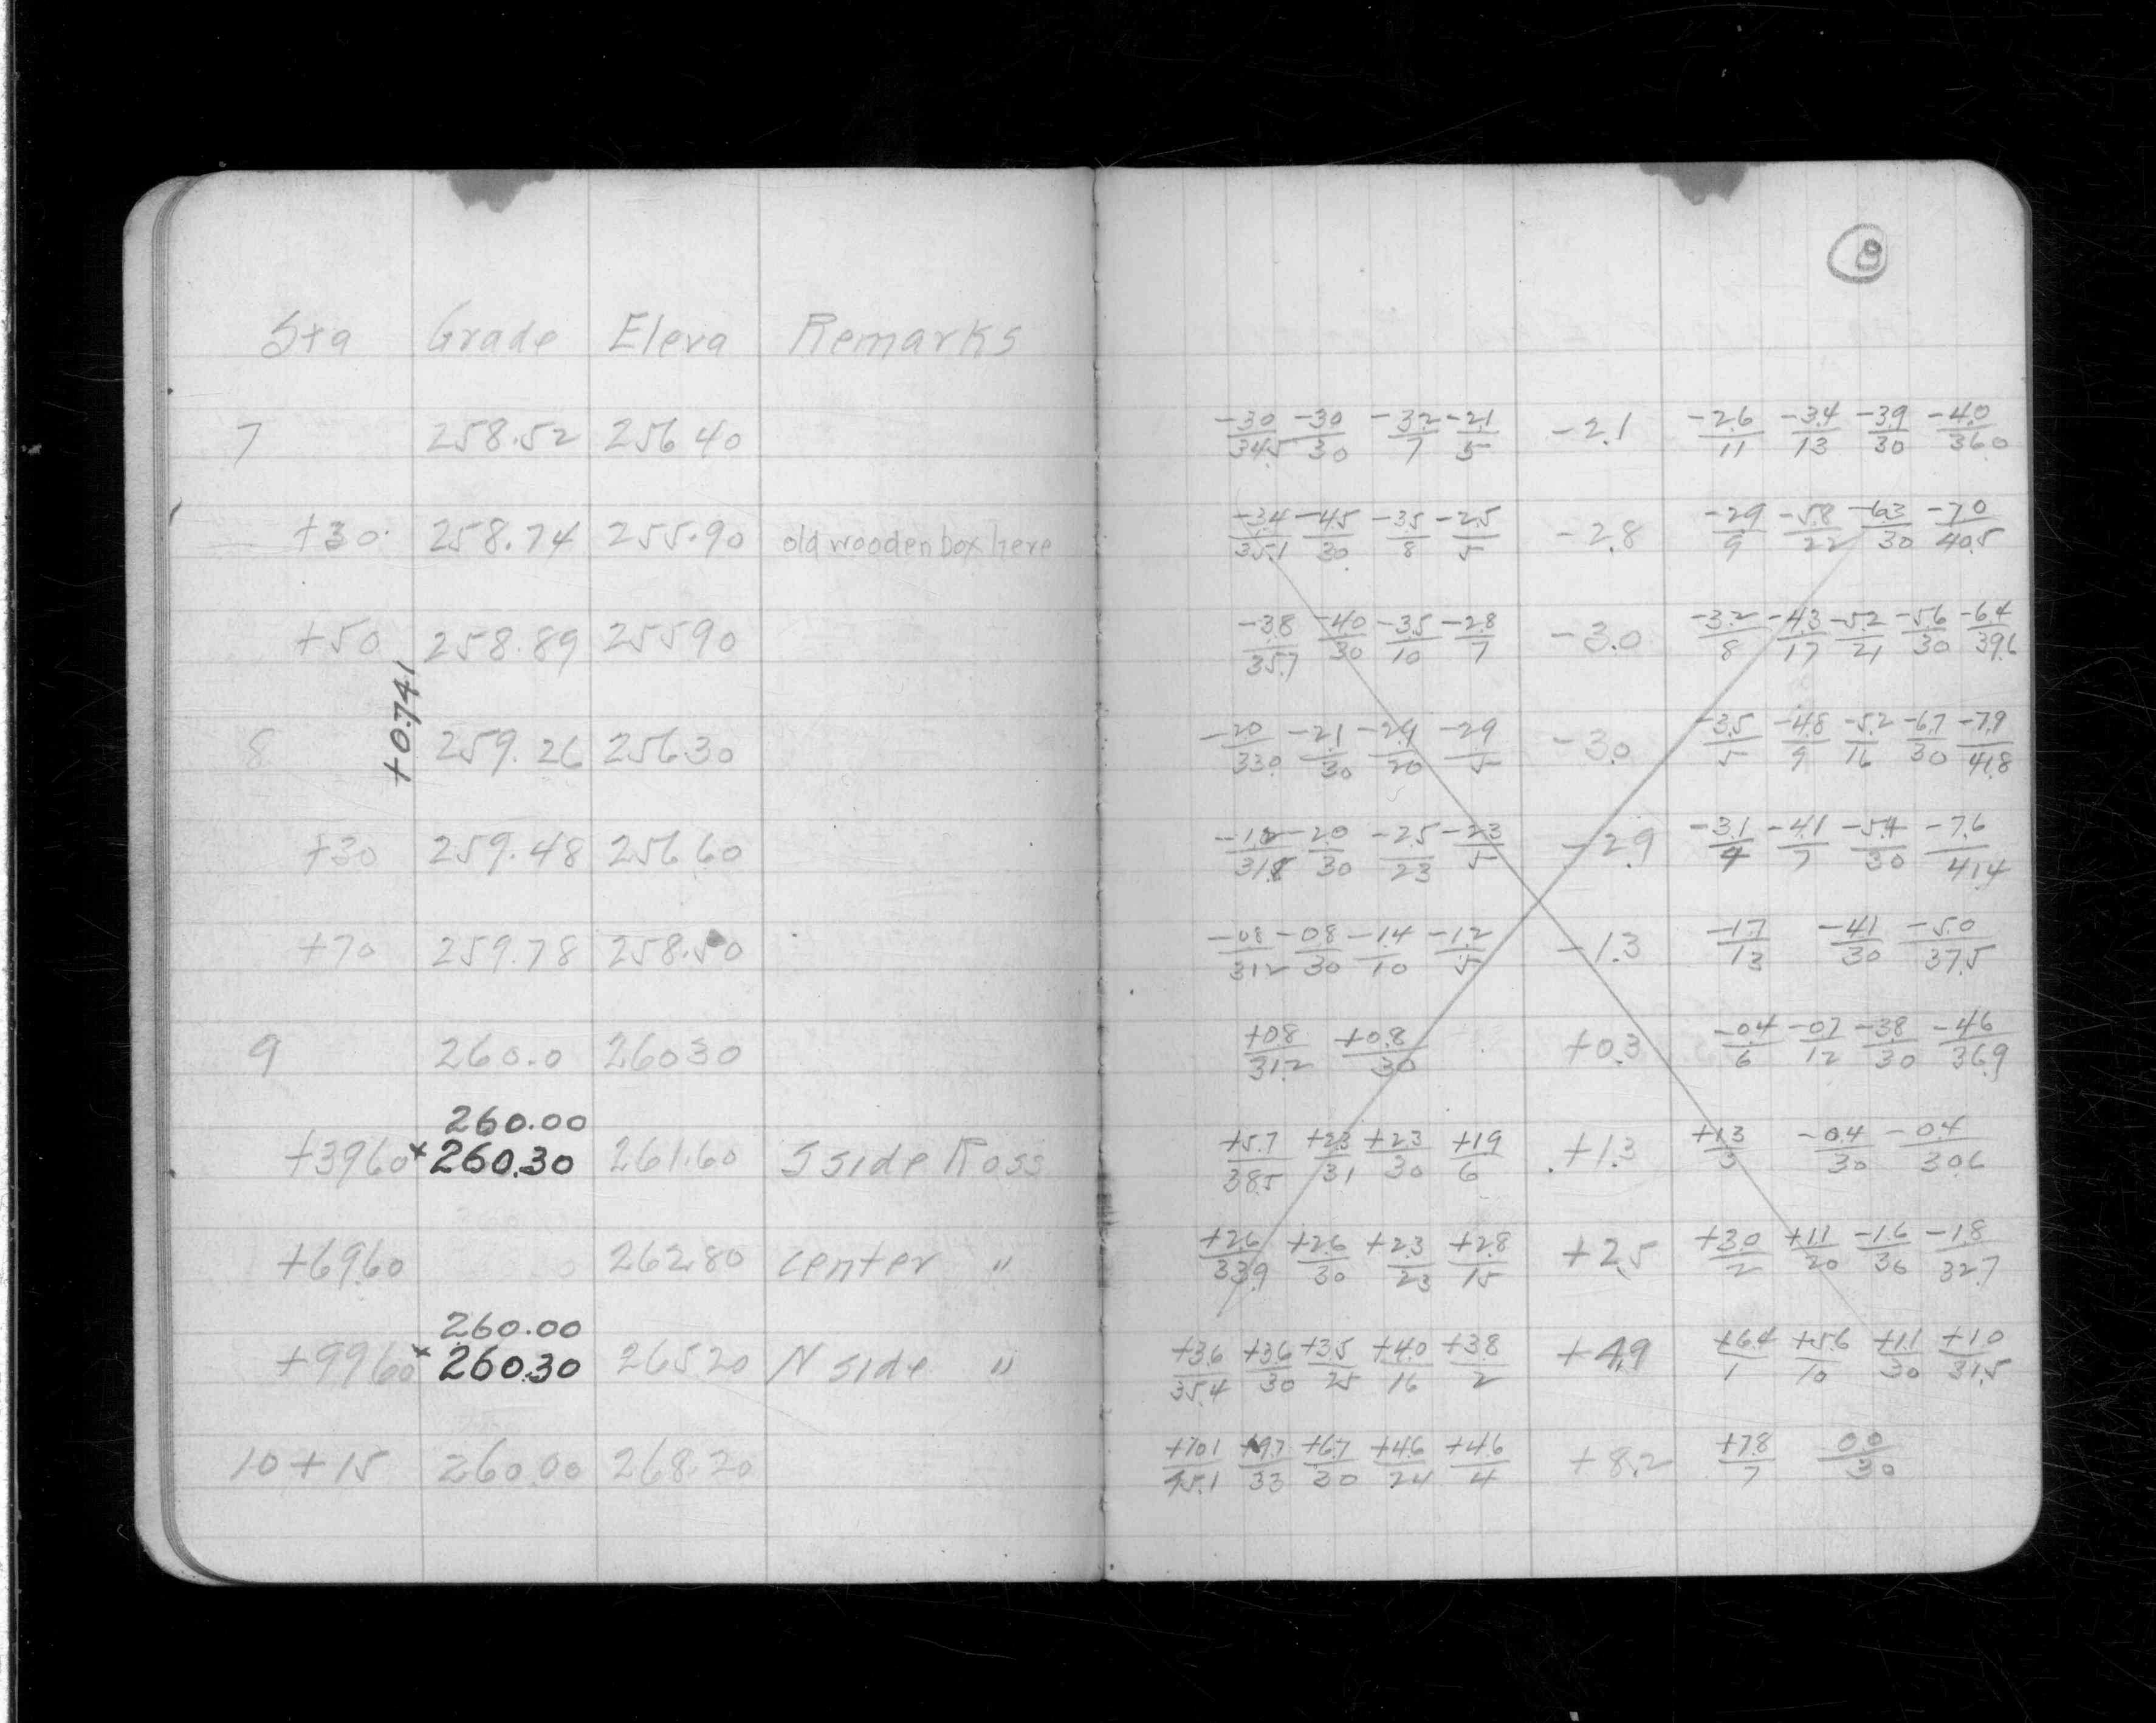 8
Sta Grade Eleva Remarks
7 258.52 256.40 -3.0/34.5 -3.0/30 -3.2/7 -2.1/5 -2.1 -2.6/11 -3.4/13 -3.9/30 -4.0/36.0
+30 258.74 255.90 old wooden box here -3.4/35.1 -4.5/30 -3.5/8 -2.5/5 -2.8 -2.9/9 -5.8/22 -6.3/30 -7.0/40.5
+50 258.89 255.90 -3.8/35.7 -4.0/30 -3.5/10 -2.8/7 -3.0 -3.2/8 -4.3/17 -5.2/21 -5.6/30 -6.4/39.6
+0.741
8 259.26 256.30 -2.0/33.0 -2.1/30 -2.9/20 -2.9/5 -3.0 -3.5/5 -4.8/9 -5.2/16 -6.7/30 -7.9/41.8
+30 259.48 256.60 -1.2/31.8 -2.0/30 -2.5/23 -2.3/5 -2.9 -3.1/4 -4.1/7 -5.4/30 -7.6/41.4
+70 259.78 258.50 -0.8/31.2 -0.8/30 -1.4/10 -1.2/5 -1.3 -1.7/13 -4.1/30 -5.0/37.5
9 260.0 260.30 +0.8/31.2 +0.8/30 +0.3 -0.4/6 -0.7/12 -3.8/30 -4.6/36.9
260.00
+39.60 x 260.30 261.60 S side Ross +5.7/38.5 +2.3/31 +2.3/30 +1.9/6 +1.3 +1.3/3 -0.4/30 -0.4/30.6
+69.60 262.80 center " +2.6/33.9 +2.6/30 +2.3/23 +2.8/15 +2.5 +3.0/2 +1.1/20 -1.6/30 -1.8/32.7
260.00
+99.60 x 260.30 265.20 N side " +3.6/35.4 +3.6/30 +3.5/25 +4.0/16 +3.8/2 +4.9 +6.4/1 +5.6/10 +1.1/30 +1.0/31.5
10+15 260.00 268.20 +10.1/45.1 +9.7/33 +6.7/30 +4.6/24 +4.6/4 +8.2 +7.8/7 0.0/30